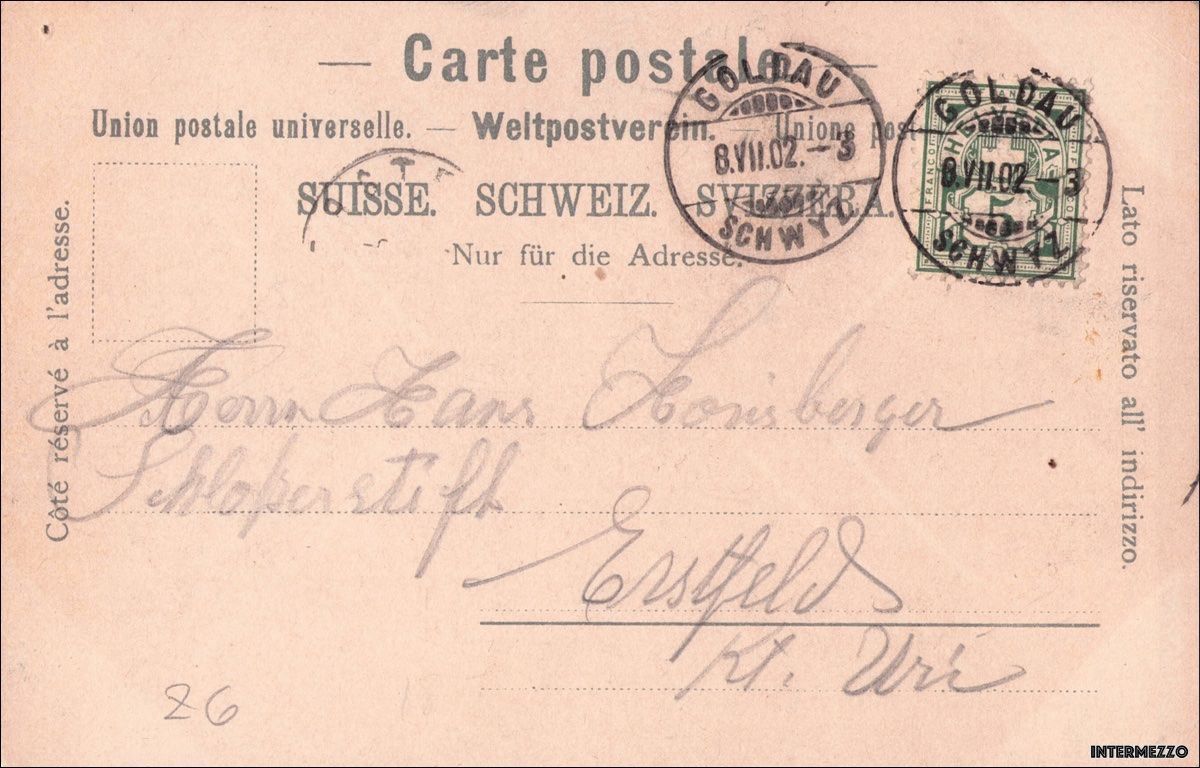 — Carte postale. —
Union postale universelle. — Weltpostverein. — Unione post
SUISSE. SCHWEIZ. SVIZZERA.
Nur für die Adresse.
Côté réservé à l'adresse.
Lato riservato all' indirizzo.
GOLDAU
8.VII.02. – 3
SCHWYZ
GOLDAU
8.VII.02. – 3
SCHWYZ
FRANCO
HELVETIA
5
Herrn Hans
Schloßerstift
Erstfeld
Kt. Uri
26
INTERMEZZO